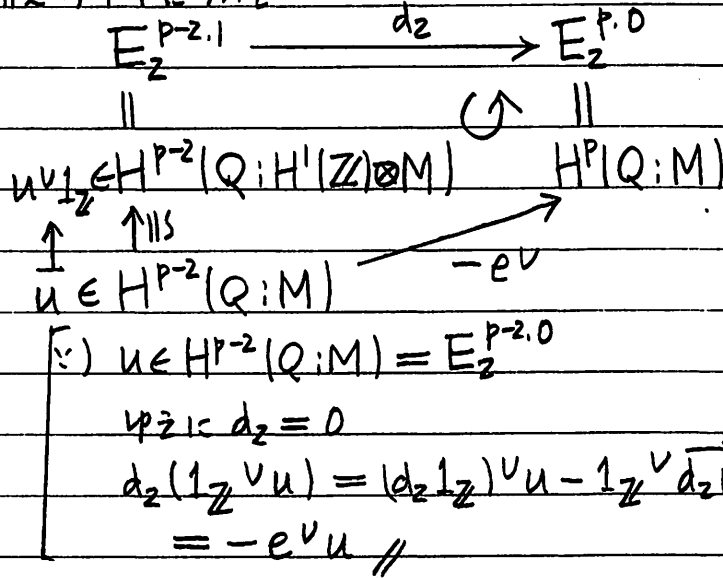 E₂^{p-2,1} —d₂→ E₂^{p,0}
‖ ↺ ‖
u∪1_ℤ ∈ H^{p-2}(Q;H¹(ℤ)⊗M) H^p(Q;M)
↑ ↑‖S
u ∈ H^{p-2}(Q;M) → -e∪
∵) u∈H^{p-2}(Q;M) = E₂^{p-2,0}
ゆえに d₂ = 0
d₂(1_ℤ∪u) = (d₂1_ℤ)∪u - 1_ℤ∪d₂
= -e∪u //